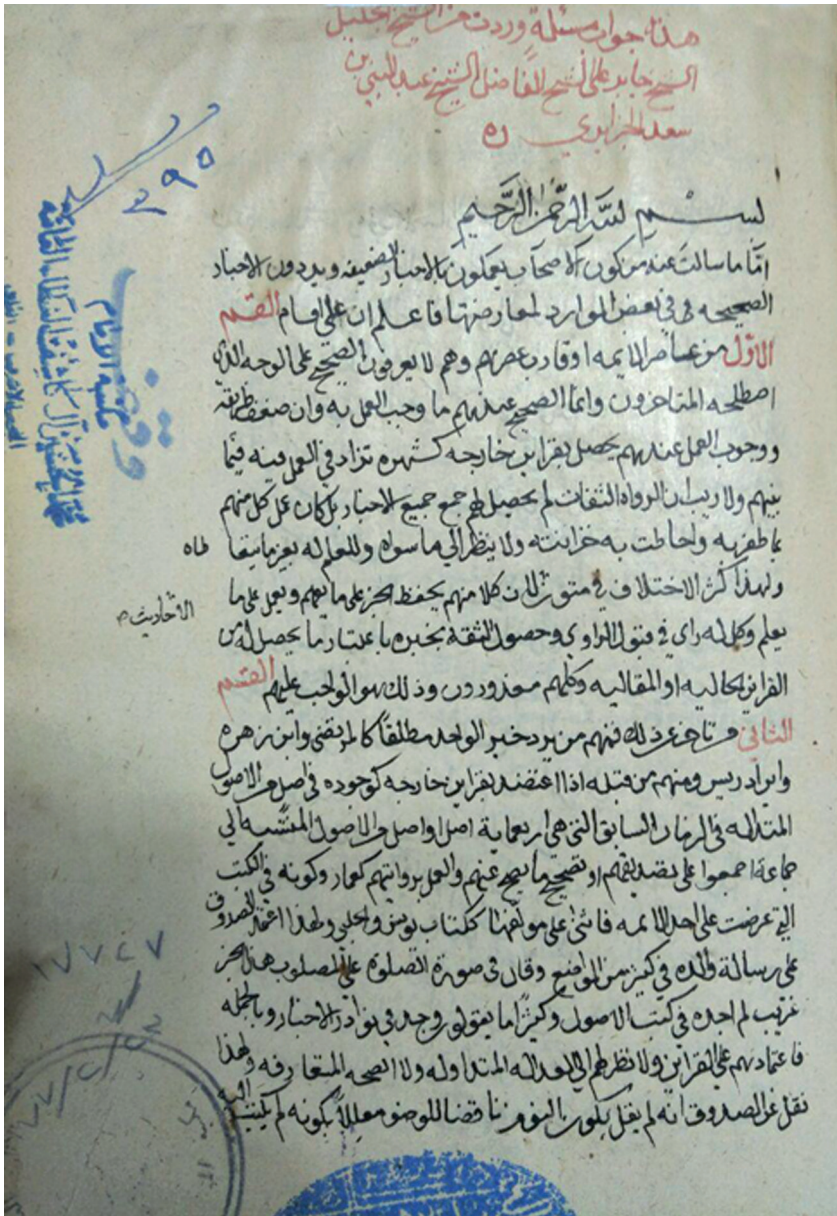 هذا جواب مسئلة وردت من الشيخ الجليل
الشيخ جابر على الشيخ الفاضل الشيخ عبد النبي بن
سعد الجزايري ره
بسم الله الرحمن الرحيم
امّا ما سالت عنه من كون الاصحاب يعملون بالاخبار الضعيفه ويردون الاخبار
الصحيحه في بعض الموارد لمعارضتها فاعلم ان على اقسام القسم
الاوّل من عاصر الايمه او قارب عصرهم وهم لا يعرفون الصحيح على الوجه الذي
اصطلحه المتاخرون وانما الصحيح عندهم ما وجب العمل به وان ضعف طريقه
ووجوب العمل عندهم يحصل بقراين خارجه كشهره تزاد في العمل فيه فيما
بينهم ولا ريب ان الرواه الثقات لم يحصل لهم جمع جميع الاخبار بل كان عمل كل منهم
بما ظفر به واحاطت به خزانته ولا ينظر الي ما سواه
ولهذا كثر الاختلاف في متون لان كلا منهم يحفظ الخبر على ما يفهم ويعمل على ما
الأحاديث
يعلم وكل له راي في قبول الراوي وحصول الثقة بخبره باعتبار ما يحصل له من
القراين الحاليه او المقاليه وكلهم معذورون وذلك هو الواجب عليهم القسم
الثاني من تاخر عن ذلك فمنهم من يرد خبر الواحد مطلقاً كالمرتضى وابن زهره
وابن ادريس ومنهم من قبله اذا اعتضد بقراين خارجه كوجوده في اصل من الاصول
المتداوله في الزمان السابق التي هي اربعماية اصل او اصل من الاصول المنتسبه الي
جماعة اجمعوا على تصديقهم او تصحيح ما يصح عنهم والعمل بروايتهم كعمار وكونه في الكتب
التي عرضت على احد الايمه فاثنى على مولفها ككتاب يونس والحلبي ولهذا اعتمد الصدوق
على رسالة والده في كثير من المواضع وقال في صورة الصلوة على المصلوب هذا خبر
غريب لم اجده في كتب الاصول وكثيراً ما يقولون وجد في نوادر الاخبار وبالجمله
فاعتمادهم على القراين ولا نظر لهم الي العداله المتداوله ولا الصحه المتعارفه ولهذا
نقل عن الصدوق انه لم يقل بكون النوم ناقضا للوضو معللاً بكونه لم يكتب اليه
٢٩٥
وقف
مكتبة الامام